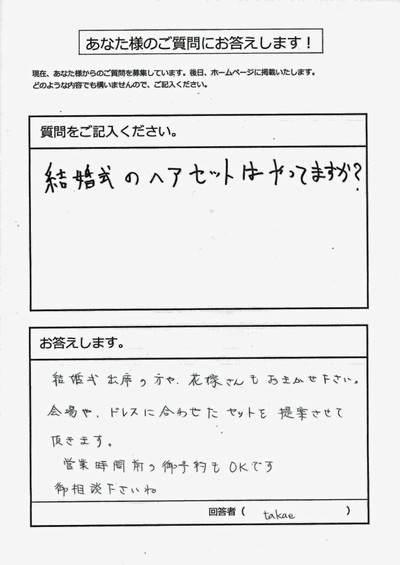 あなた様のご質問にお答えします！
現在、あなた様からのご質問を募集しています。後日、ホームページに掲載いたします。
どのような内容でも構いませんので、ご記入ください。
質問をご記入ください。
結婚式のヘアセットはやってますか？
お答えします。
結婚式出席の方や、花嫁さんもおまかせ下さい。
会場や、ドレスに合わせたセットを提案させて
頂きます。
営業時間前の御予約もOKです
御相談下さいね
回答者（ takae ）